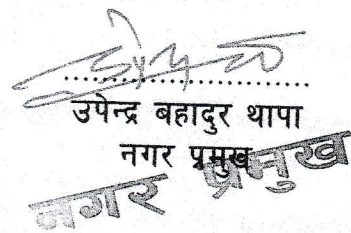 उपेन्द्र बहादुर थापा
नगर प्रमुख
नगर प्रमुख